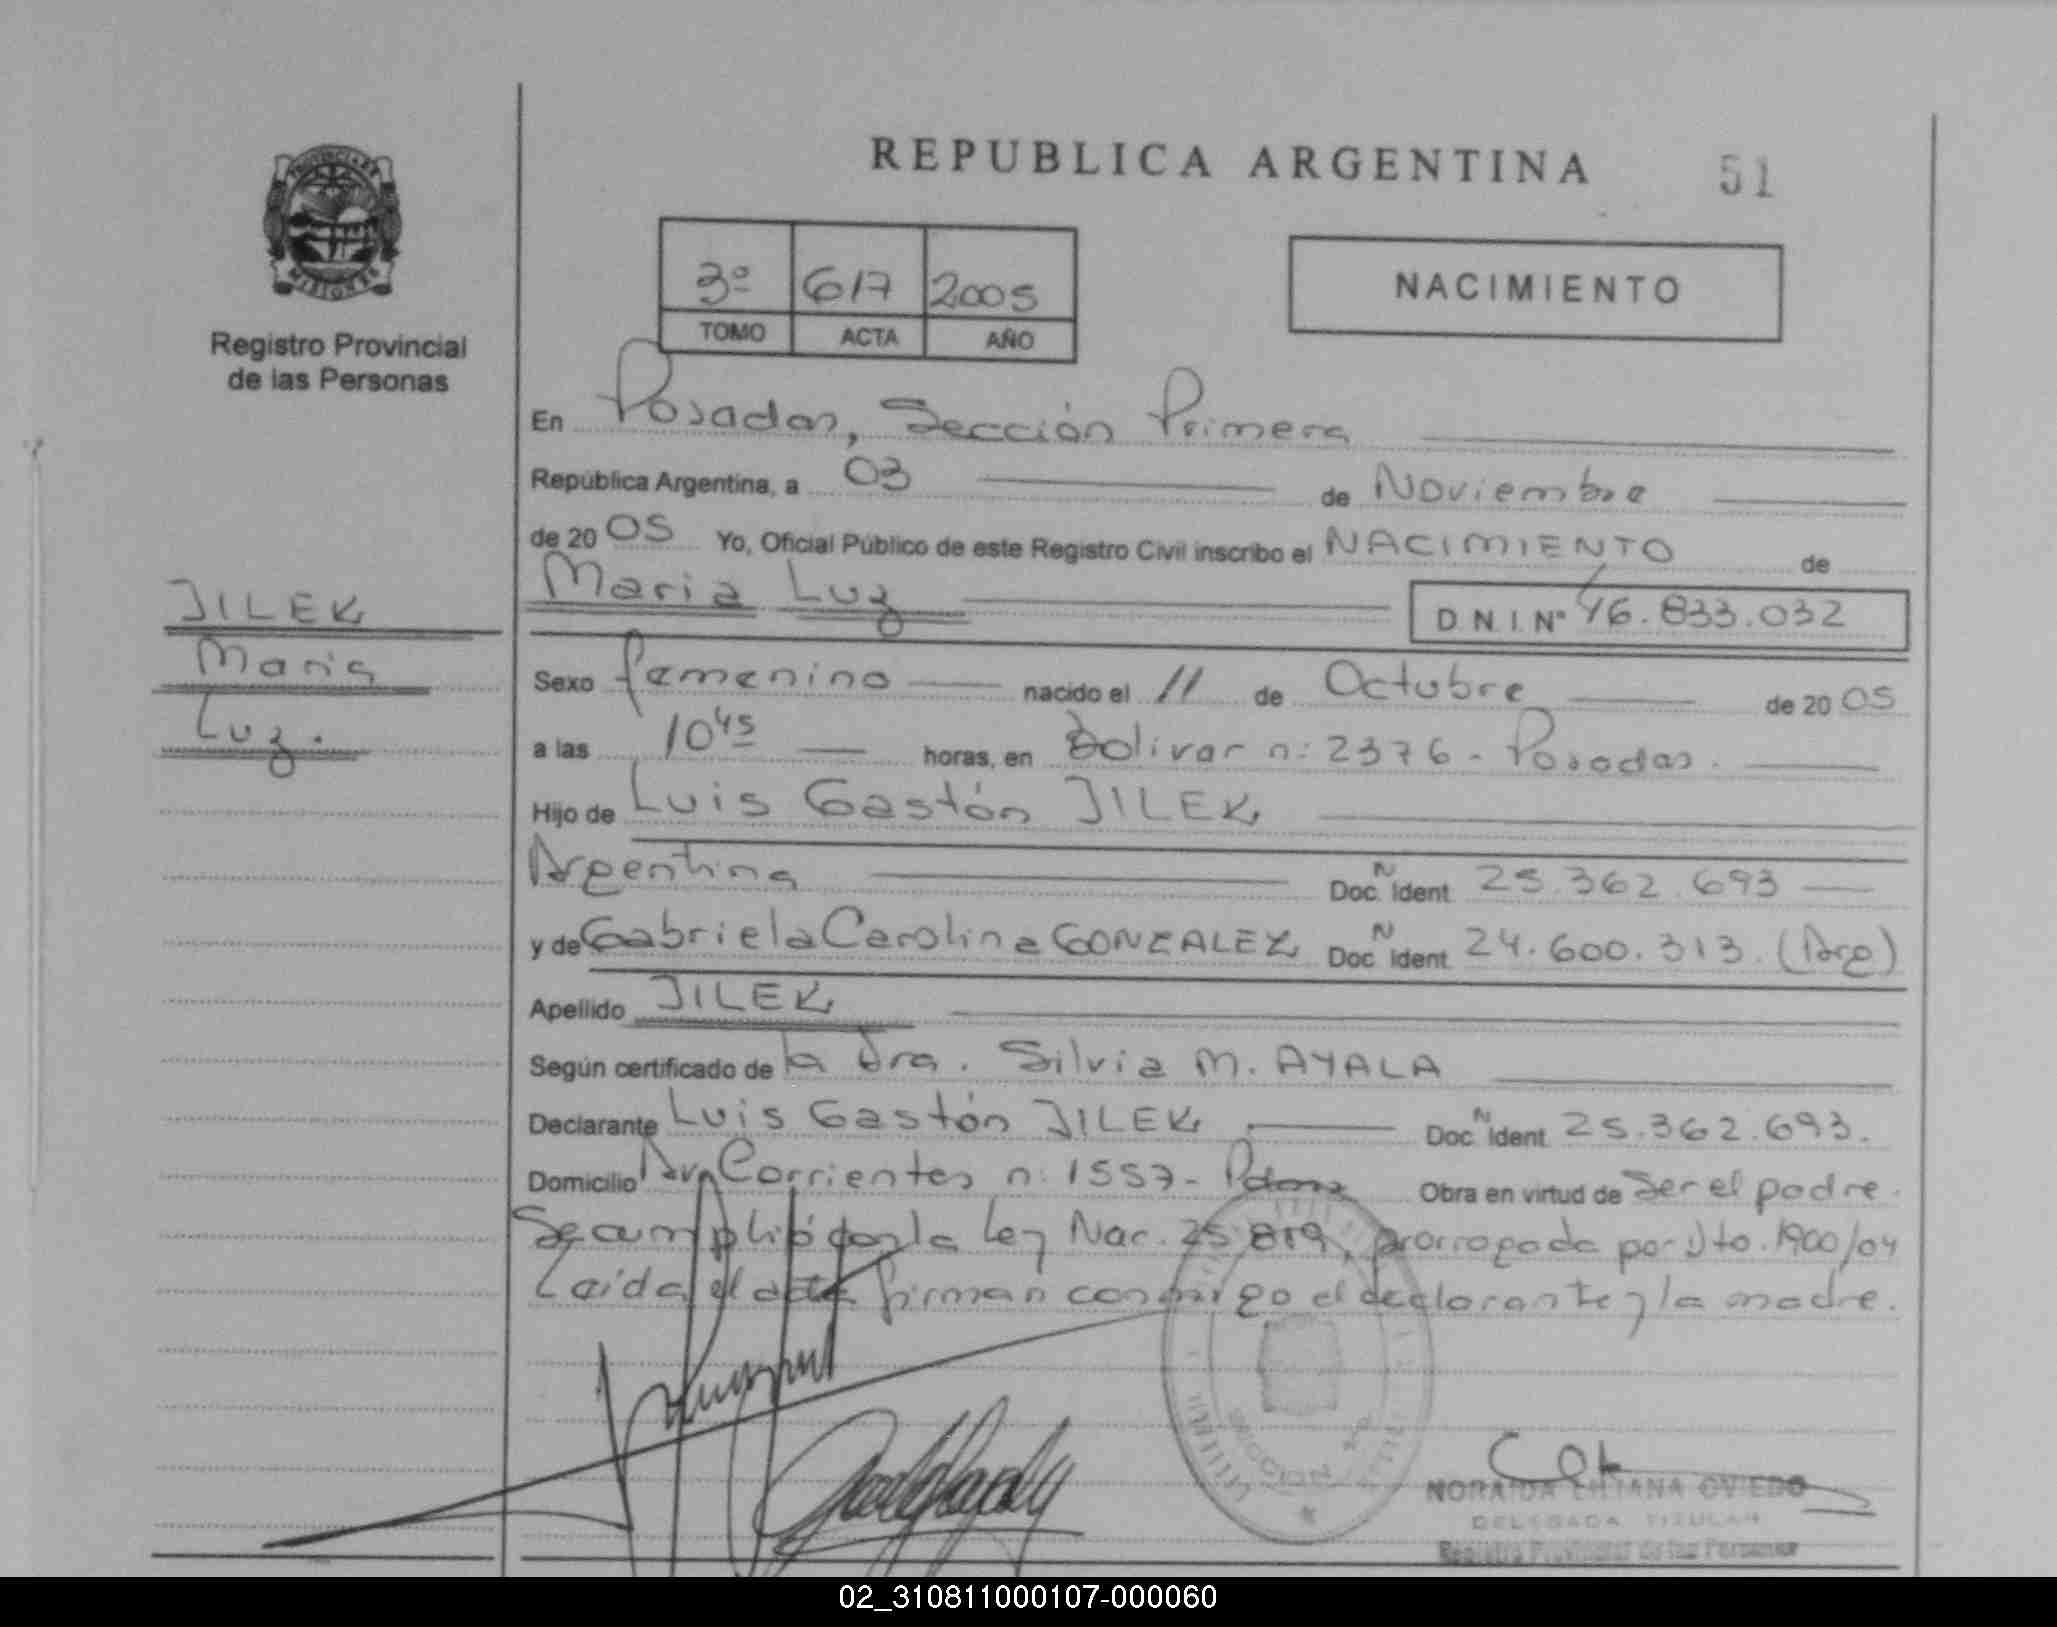 REPUBLICA ARGENTINA
51
PROVINCIA DE
MISIONES
Registro Provincial
de las Personas
3º 617 2005
TOMO ACTA AÑO
NACIMIENTO
En Posadas, Sección Primera
República Argentina, a 03 de Noviembre
de 2005 Yo, Oficial Público de este Registro Civil inscribo el NACIMIENTO de
Maria Luz D.N.I. Nº 46.833.032
JILEK
Maria
Luz.
Sexo femenino nacido el 11 de Octubre de 2005
a las 10 45 horas, en Bolivar n: 2376 - Posadas.
Hijo de Luis Gastón JILEK
Argentina Doc. N Ident 25.362.693
y de Gabriela Carolina GONZALEZ Doc. N Ident 24.600.313. (Arg)
Apellido JILEK
Según certificado de la Dra. Silvia M. AYALA
Declarante Luis Gastón JILEK Doc. N Ident 25.362.693.
Domicilio Av. Corrientes n: 1557 - Pdas Obra en virtud de Ser el padre.
Se cumplió con la Ley Nac. 25.819, prorrogada por Dto. 1900/04
Leída el acta firman conmigo el declarante y la madre.
SECCION
NORAIDA LILIANA OVIEDO
DELEGADA TITULAR
Registro Provincial de las Personas
02_310811000107-000060